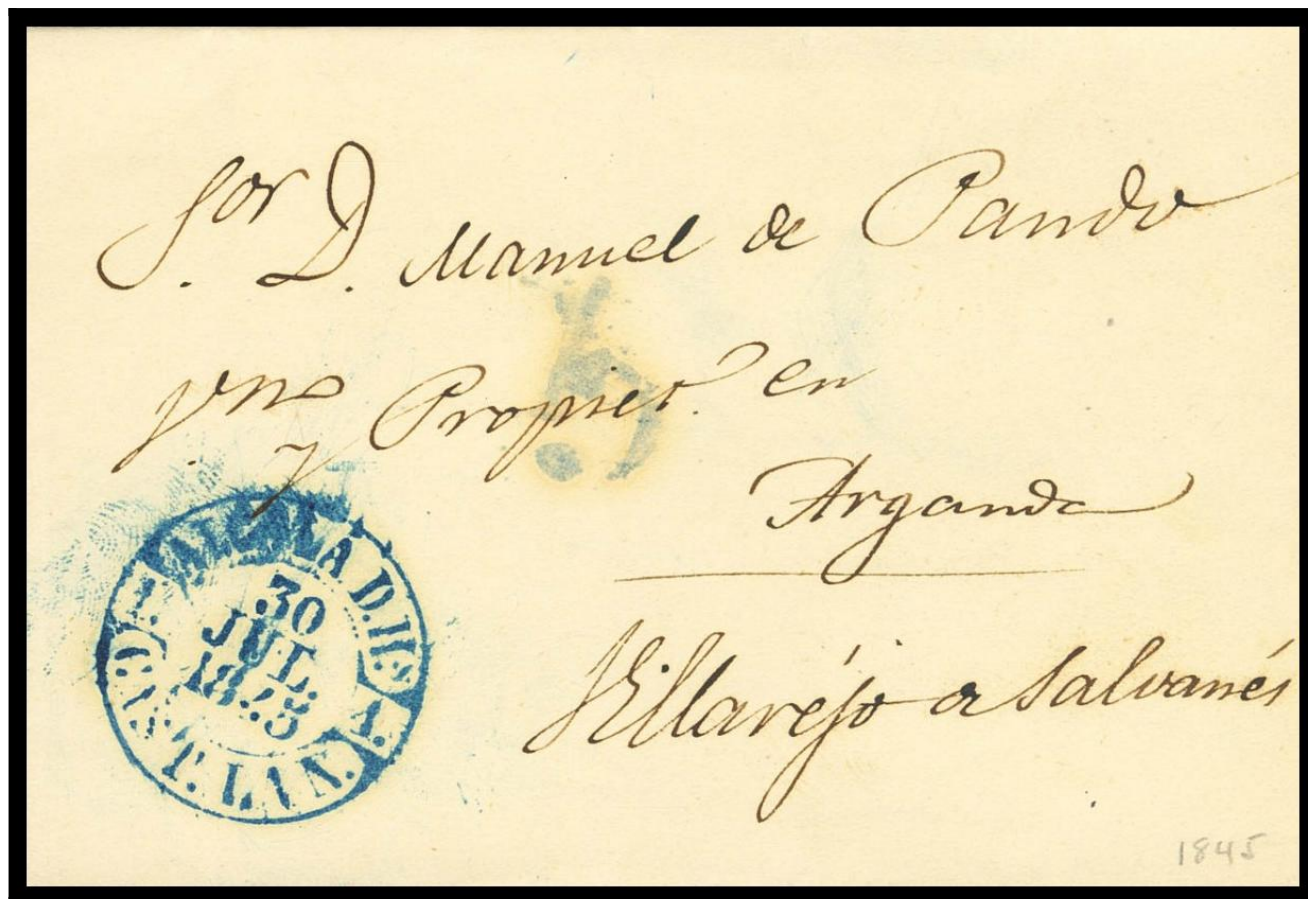 Sor D. Manuel de Pando
y Propiet.o en
Arganda
Villaréjo de Salvanés
ALCALA D. HS
30
JUL.
1845
CAST. LA N.
1845